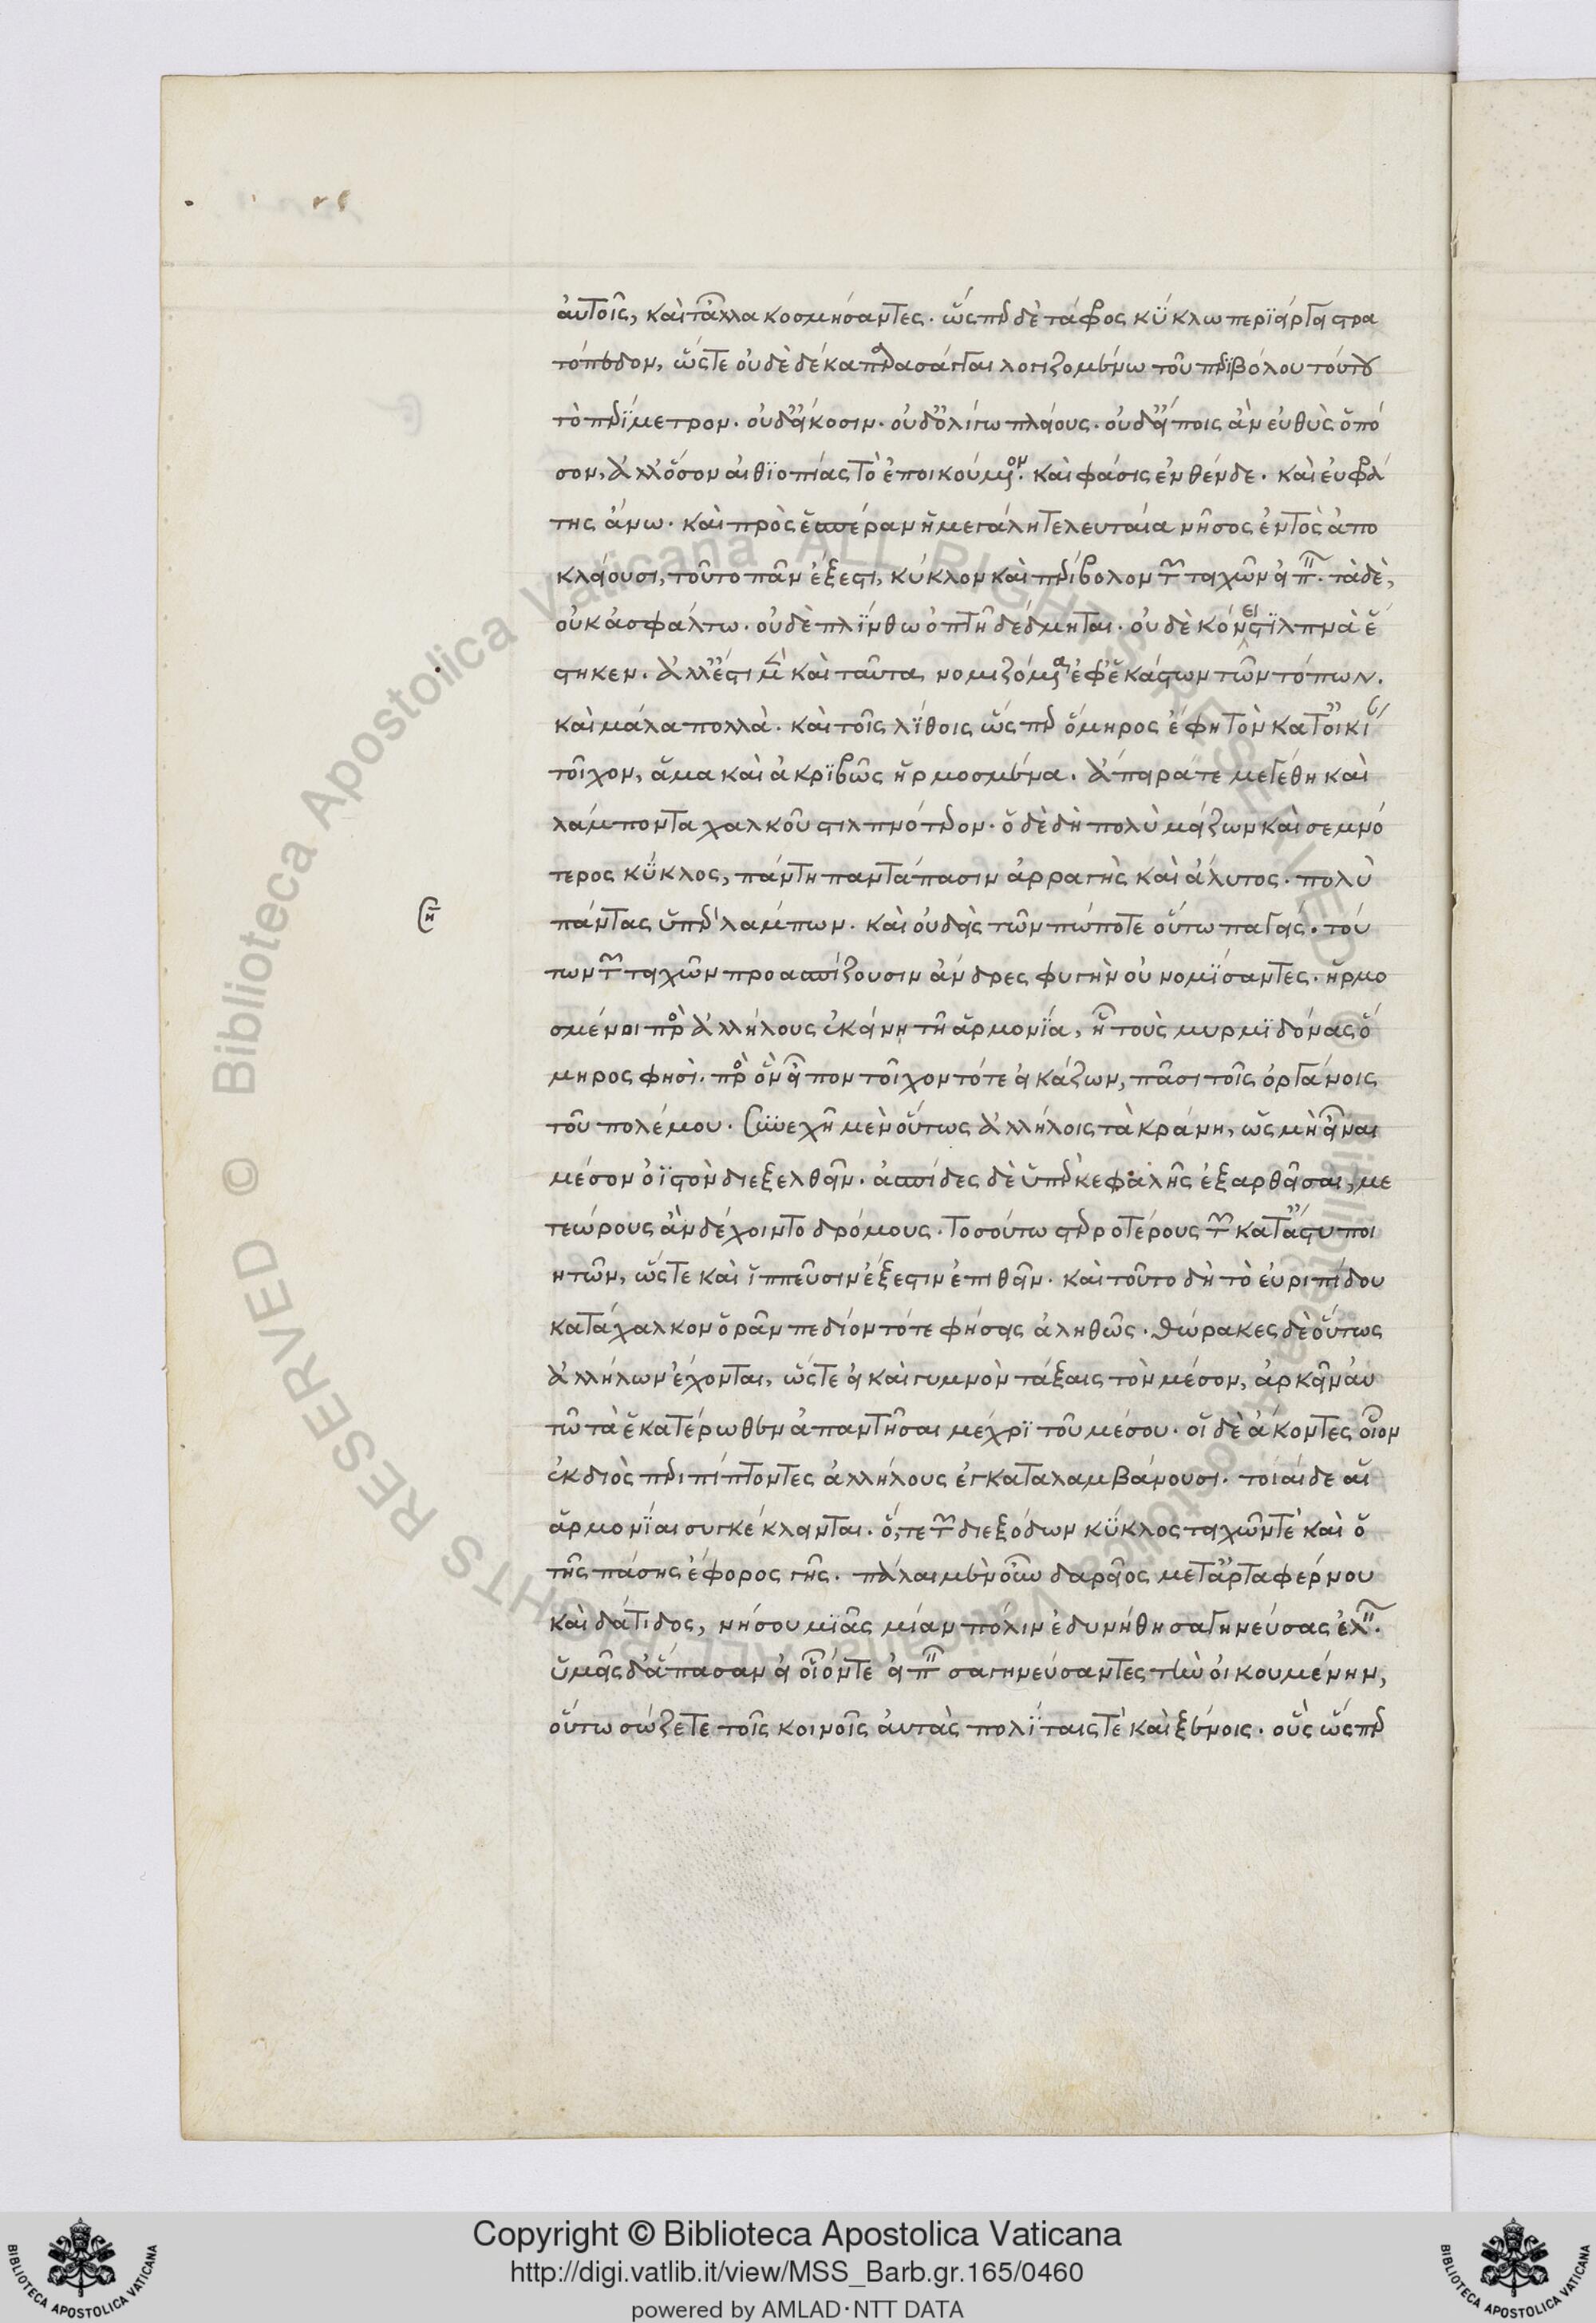 αὐτοῖς, καὶ τἆλλα κοσμήσαντες. ὥσπερ δὲ τάφρος κύκλω περιείργει στρα
τόπεδον, ὥστε οὐδὲ δέκα παρασάγγαι λογιζομένω τοῦ περιβόλου τούτου
τὸ περίμετρον. οὐδ' εἴκοσιν. οὐδ' ὀλίγω πλείους. οὐδ' εἴποις ἂν εὐθὺς ὁπό
σον, ἀλλ' ὅσον αἰθιοπίας τὸ ἐποικούμενον. καὶ φάσις ἐνθένδε. καὶ εὐφρά
της ἄνω. καὶ πρὸς ἑσπέραν ἡ μεγάλη τελευταία νῆσος ἐντὸς ἀπο
κλείουσι, τοῦτο πᾶν ἔξεστι, κύκλον καὶ περίβολον τῶν τειχῶν εἰπεῖν. τὰ δὲ,
οὐκ ἀσφάλτω. οὐδὲ πλίνθω ὀπτῇ δέδμηται. οὐδὲ κόνει στιλπνὰ ἕ
στηκεν. ἀλλ' ἔστι μὲν καὶ ταῦτα νομιζόμενα ἐφ' ἑκάστων τῶν τόπων.
καὶ μάλα πολλὰ. καὶ τοῖς λίθοις ὥσπερ ὅμηρος ἔφη τὸν κατ' οἰκίας
τοῖχον, ἅμα καὶ ἀκριβῶς ἡρμοσμένα. ἄπειρά τε μεγέθη καὶ
λάμποντα χαλκοῦ στιλπνότερον. ὁ δὲ δὴ πολὺ μείζων καὶ σεμνό
τερος κύκλος, πάντη παντάπασιν ἀρραγὴς καὶ ἄλυτος. πολὺ
πάντας ὑπερλάμπων. καὶ οὐδεὶς τῶν πώποτε οὕτω παγείς. τού
ση
των τῶν τειχῶν προασπίζουσιν ἄνδρες φυγὴν οὐ νομίσαντες. ἡρμο
σμένοι πρὸς ἀλλήλους ἐκείνη τῇ ἁρμονία, ᾗ τοὺς μυρμιδόνας ὅ
μηρος φησὶ. πρὸς ὃν εἶπον τοῖχον τότε εἰκάζων, πᾶσι τοῖς ὀργάνοις
τοῦ πολέμου. συνεχῆ μὲν οὕτως ἀλλήλοις τὰ κράνη, ὡς μὴ εἶναι
μέσον ὀϊστὸν διεξελθεῖν. ἀσπίδες δὲ ὑπὲρ κεφαλῆς ἐξαρθεῖσαι, με
τεώρους ἂν δέχοιντο δρόμους. τοσούτω στερροτέρους τῶν κατ' ἄστυ ποι
ητῶν, ὥστε καὶ ἱππεῦσιν ἔξεστιν ἐπιθεῖν. καὶ τοῦτο δὴ τὸ εὐριπίδου
κατάχαλκον ὁρᾶν πεδίον τότε φήσεις ἀληθῶς. θώρακες δὲ οὕτως
ἀλλήλων ἔχονται, ὥστε εἰ καὶ γυμνὸν τάξαις τὸν μέσον, ἀρκεῖν αὐ
τῶ τὰ ἑκατέρωθεν ἀπαντῆσαι μέχρι τοῦ μέσου. οἱ δὲ ἄκοντες οἷον
ἐκ διὸς περιπίπτοντες ἀλλήλους ἐγκαταλαμβάνουσι. τοιαίδε αἱ
ἁρμονίαι συγκέκλεινται. ὅ, τε τῶν διεξόδων κύκλος τειχῶν τὲ καὶ ὁ
τῆς πάσης ἔφορος γῆς. πάλαι μὲν οὖν δαρεῖος μετ' ἀρταφέρνου
καὶ δάτιδος, νήσου μιᾶς μίαν πόλιν ἐδυνήθη σαγηνεύσας ἑλεῖν.
ὑμεῖς δ' ἅπασαν εἰ οἷόν τε εἰπεῖν σαγηνεύσαντες τὴν οἰκουμένην,
οὕτω σώζετε τοῖς κοινοῖς αὐτὰς πολίταις τὲ καὶ ξένοις. οὓς ὥσπερ
Copyright © Biblioteca Apostolica Vaticana
http://digi.vatlib.it/view/MSS_Barb.gr.165/0460
powered by AMLAD·NTT DATA